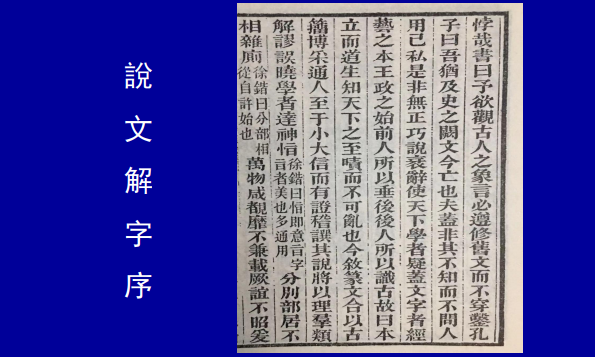 說文解字序
悖哉書曰予欲觀古人之象言必遵修舊文而不穿鑿孔
子曰吾猶及史之闕文今亡也夫蓋非其不知而不問人
用己私是非無正巧說衺辭使天下學者疑蓋文字者經
藝之本王政之始前人所以垂後後人所以識古故曰本
立而道生知天下之至嘖而不可亂也今敘篆文合以古
籒博采通人至于小大信而有證稽譔其說將以理羣類
解謬誤曉學者達神恉徐鍇曰恉即意旨字旨者美也多通用分別部居不
相雜廁徐鍇曰分部相從自許始也萬物咸覩靡不兼載厥誼不昭爰